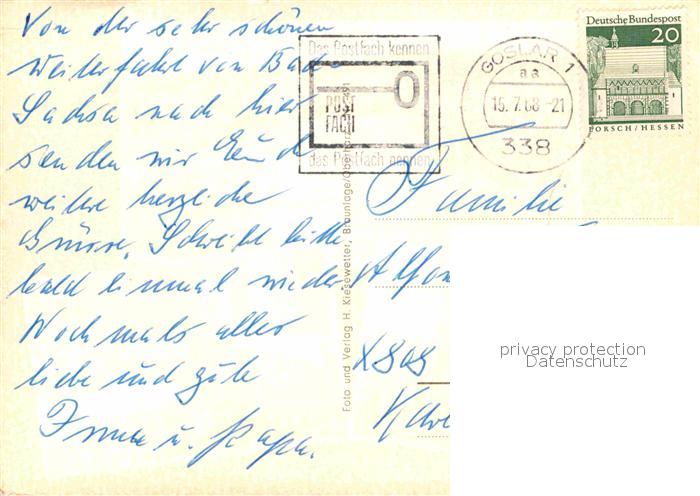 Von der sehr schönen
Weiterfahrt von Bad
Sachsa nach hier
senden wir Euch
weitere herzliche
Grüsse. Schreibt bitte
bald einmal wieder.
Nochmals alles
liebe und gute
u. Papa.
Das Postfach kennen
POST
FACH
das Postfach nennen
GOSLAR 1
aa
15.7.68-21
338
Deutsche Bundespost
20
LORSCH/HESSEN
Foto und Verlag H. Kiesewetter, Braunlage/Oberharz
Familie
privacy protection
Datenschutz